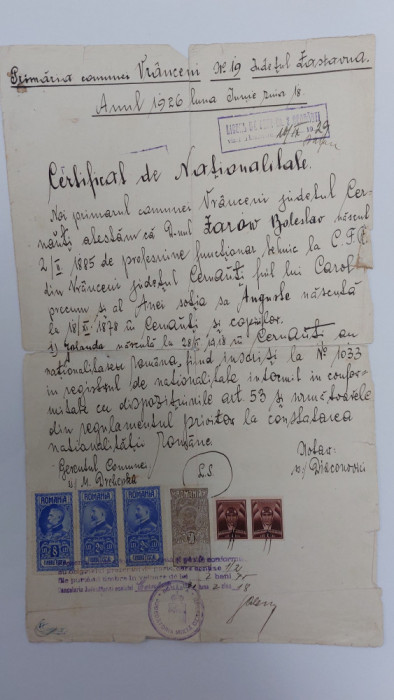 Primăria comunei Vrânceni No 19 Județul Zastavna.
Anul 1926 luna Iunie ziua 18.
LICEUL DE
29
Certificat de Naționalitate.
Noi primarul comunei Vrânceni județul Cer-
năuți atestăm că D-nul Zarow Boleslav născut
2/X 1885 de profesiune funcționar tehnic la C.F.R.
din Vrânceni județul Cernăuți fiul lui Carol
precum și al Anei soția sa Auguste născută
la 18/ 1878 în Cernăuți și copiilor.
1) Iolanda născută la 28/ 1918 în Cernăuți au
naționalitatea Română, fiind înscriși la No 1033
in registrul de naționalitate intocmit in confor-
mitate cu dispozițiunile art. 53 și următoarele
din regulamentul privitor la constatarea
naționalității Române.
Gerentul Comunei
L.S.
Notar
ROMANIA ROMANIA ROMANIA